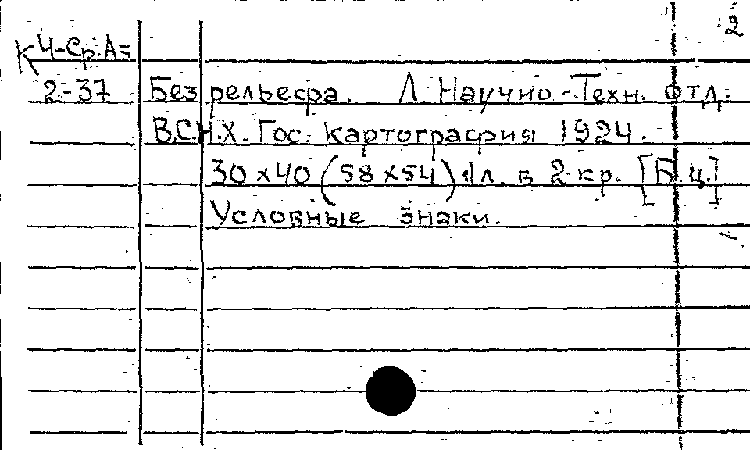 2
К Ч-Ср.А=
2-37 Без рельефа. Л. Научно-Техн. отд.
В.С.Н.Х. Гос. картография 1924.
30 x 40 (58 x 54) 1 л. в 2 кр. [Б.ц.]
Условные знаки.